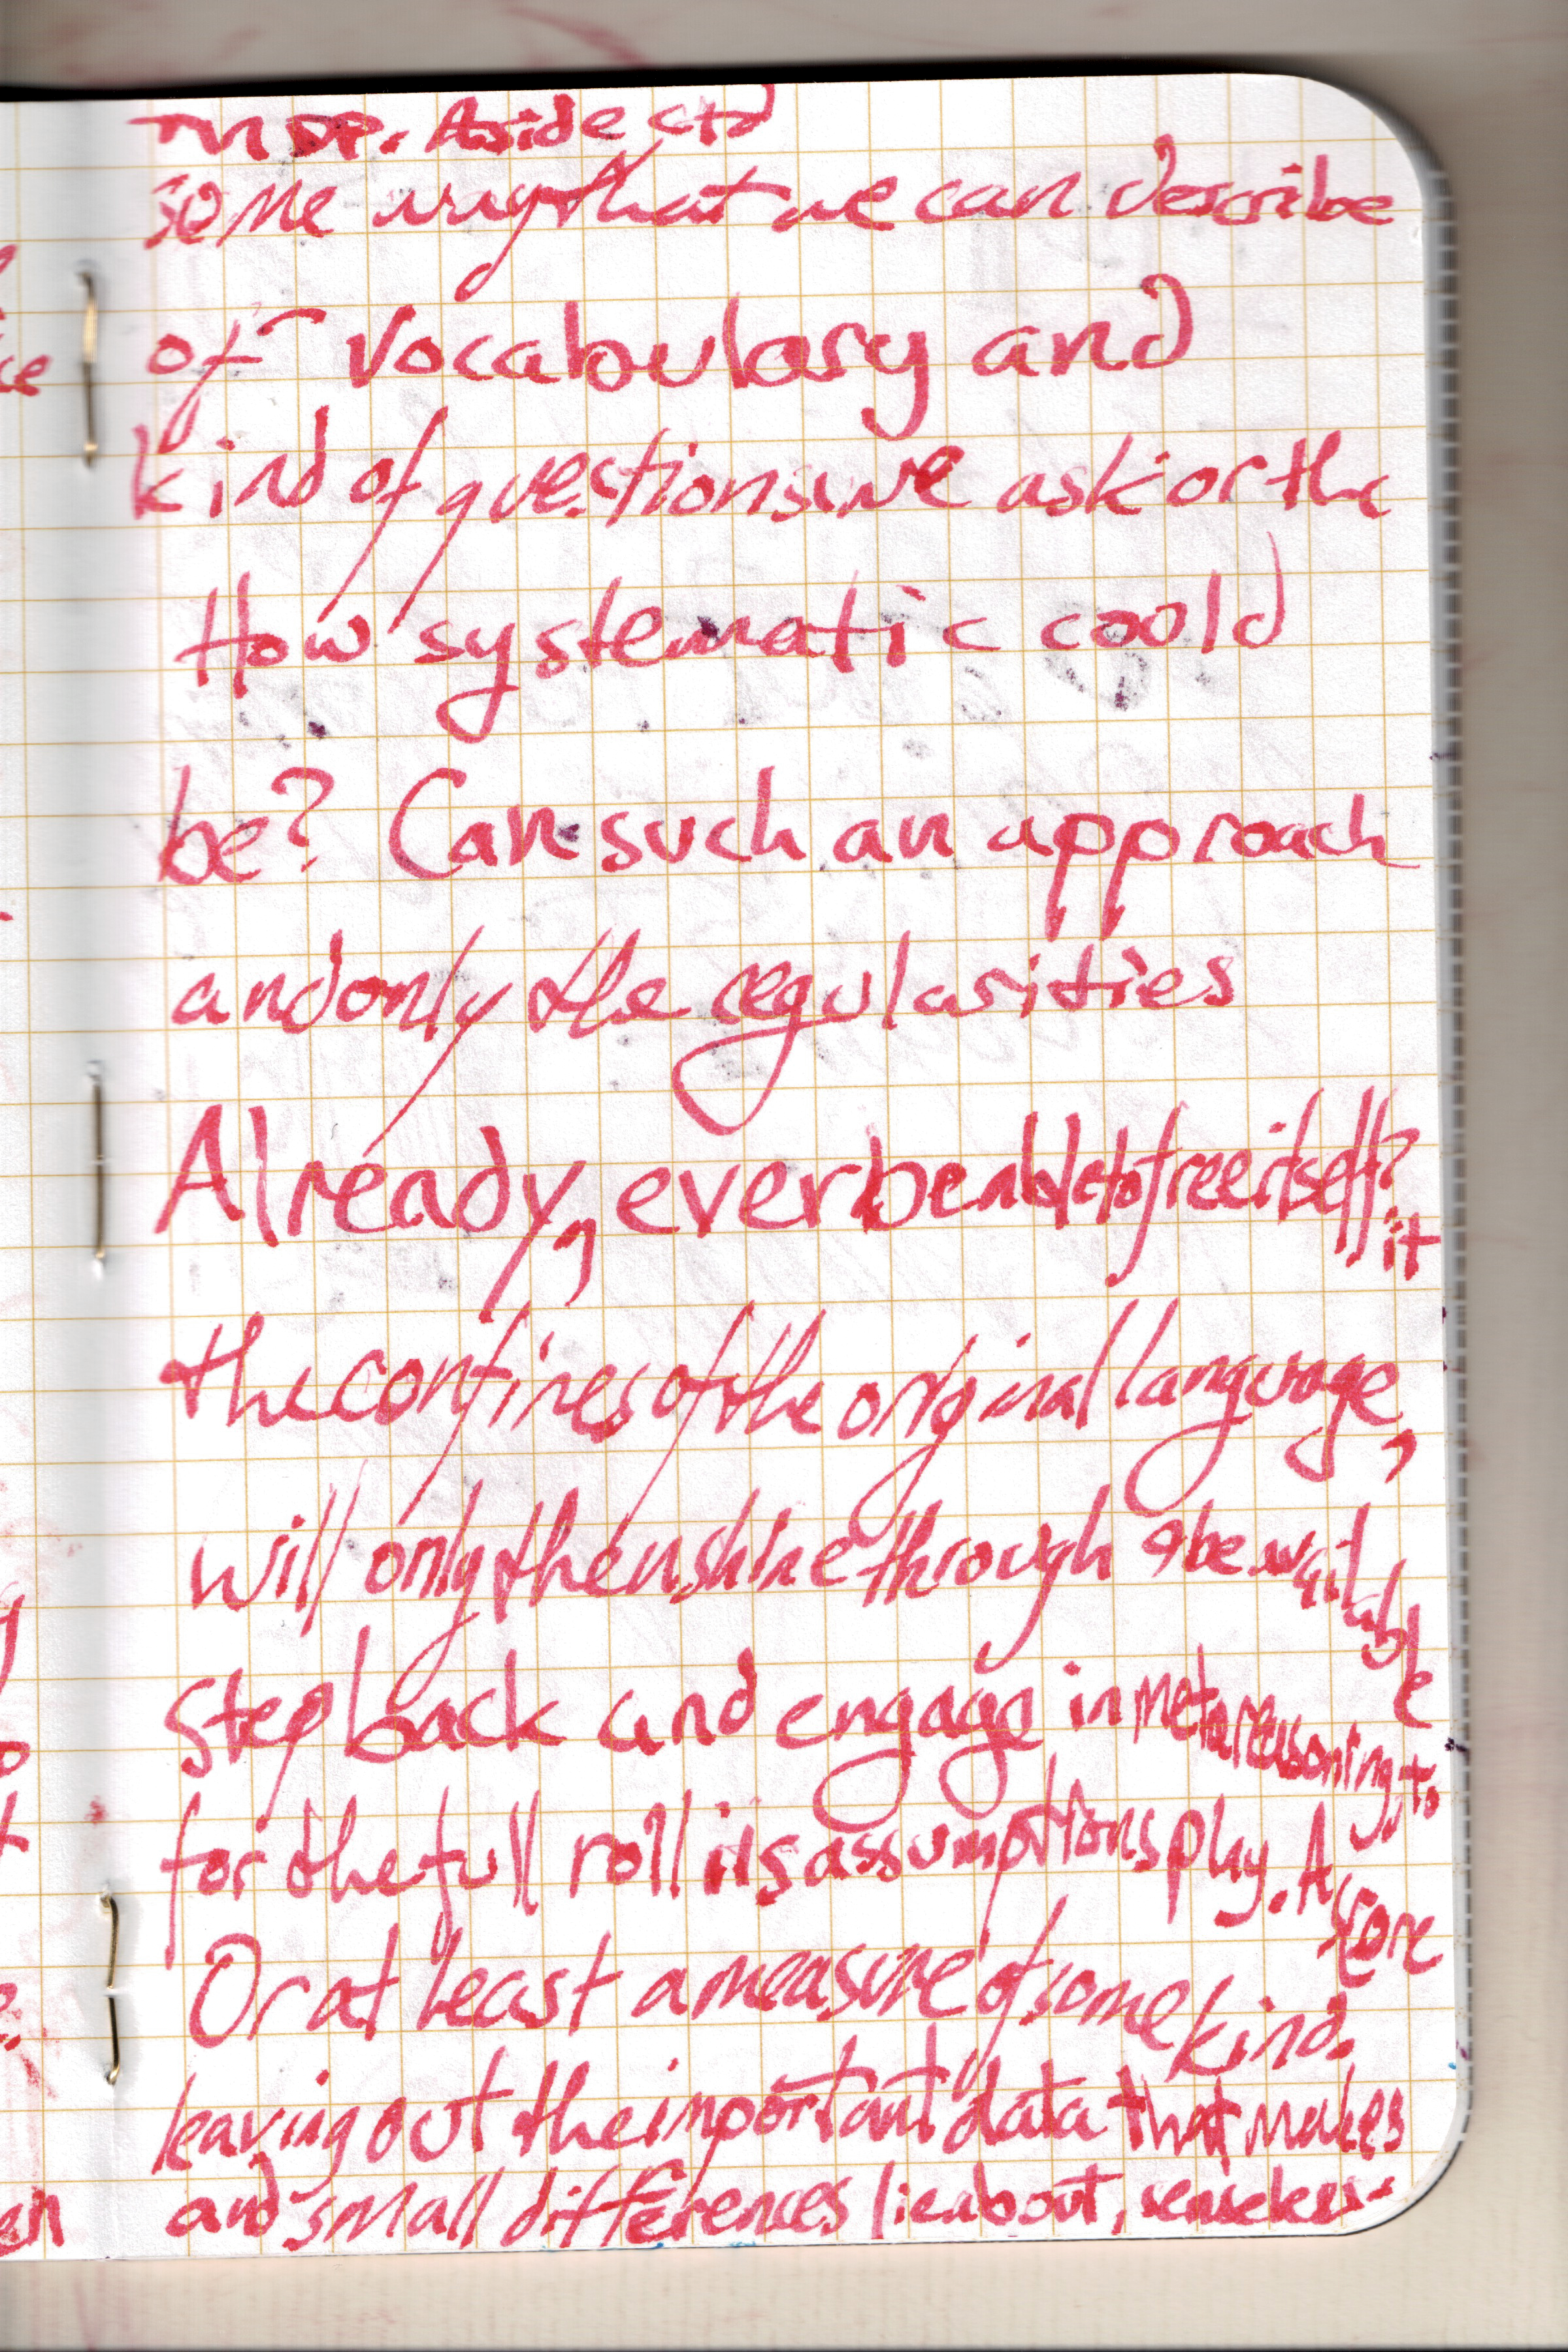 DP. Aside ctd
some way that we can describe
of vocabulary and
kind of questions we ask or the
How systematic could
be? Can such an approach
and only the regularities
Already, ever be able to free itself?
it
the confines of the original language,
will only then shine through & be available
Step back and engage in metareasoning, to
for the full roll its assumptions play. A score
Or at least a measure of some kind.
leaving out the important data that makes
and small differences lie about, senseless.